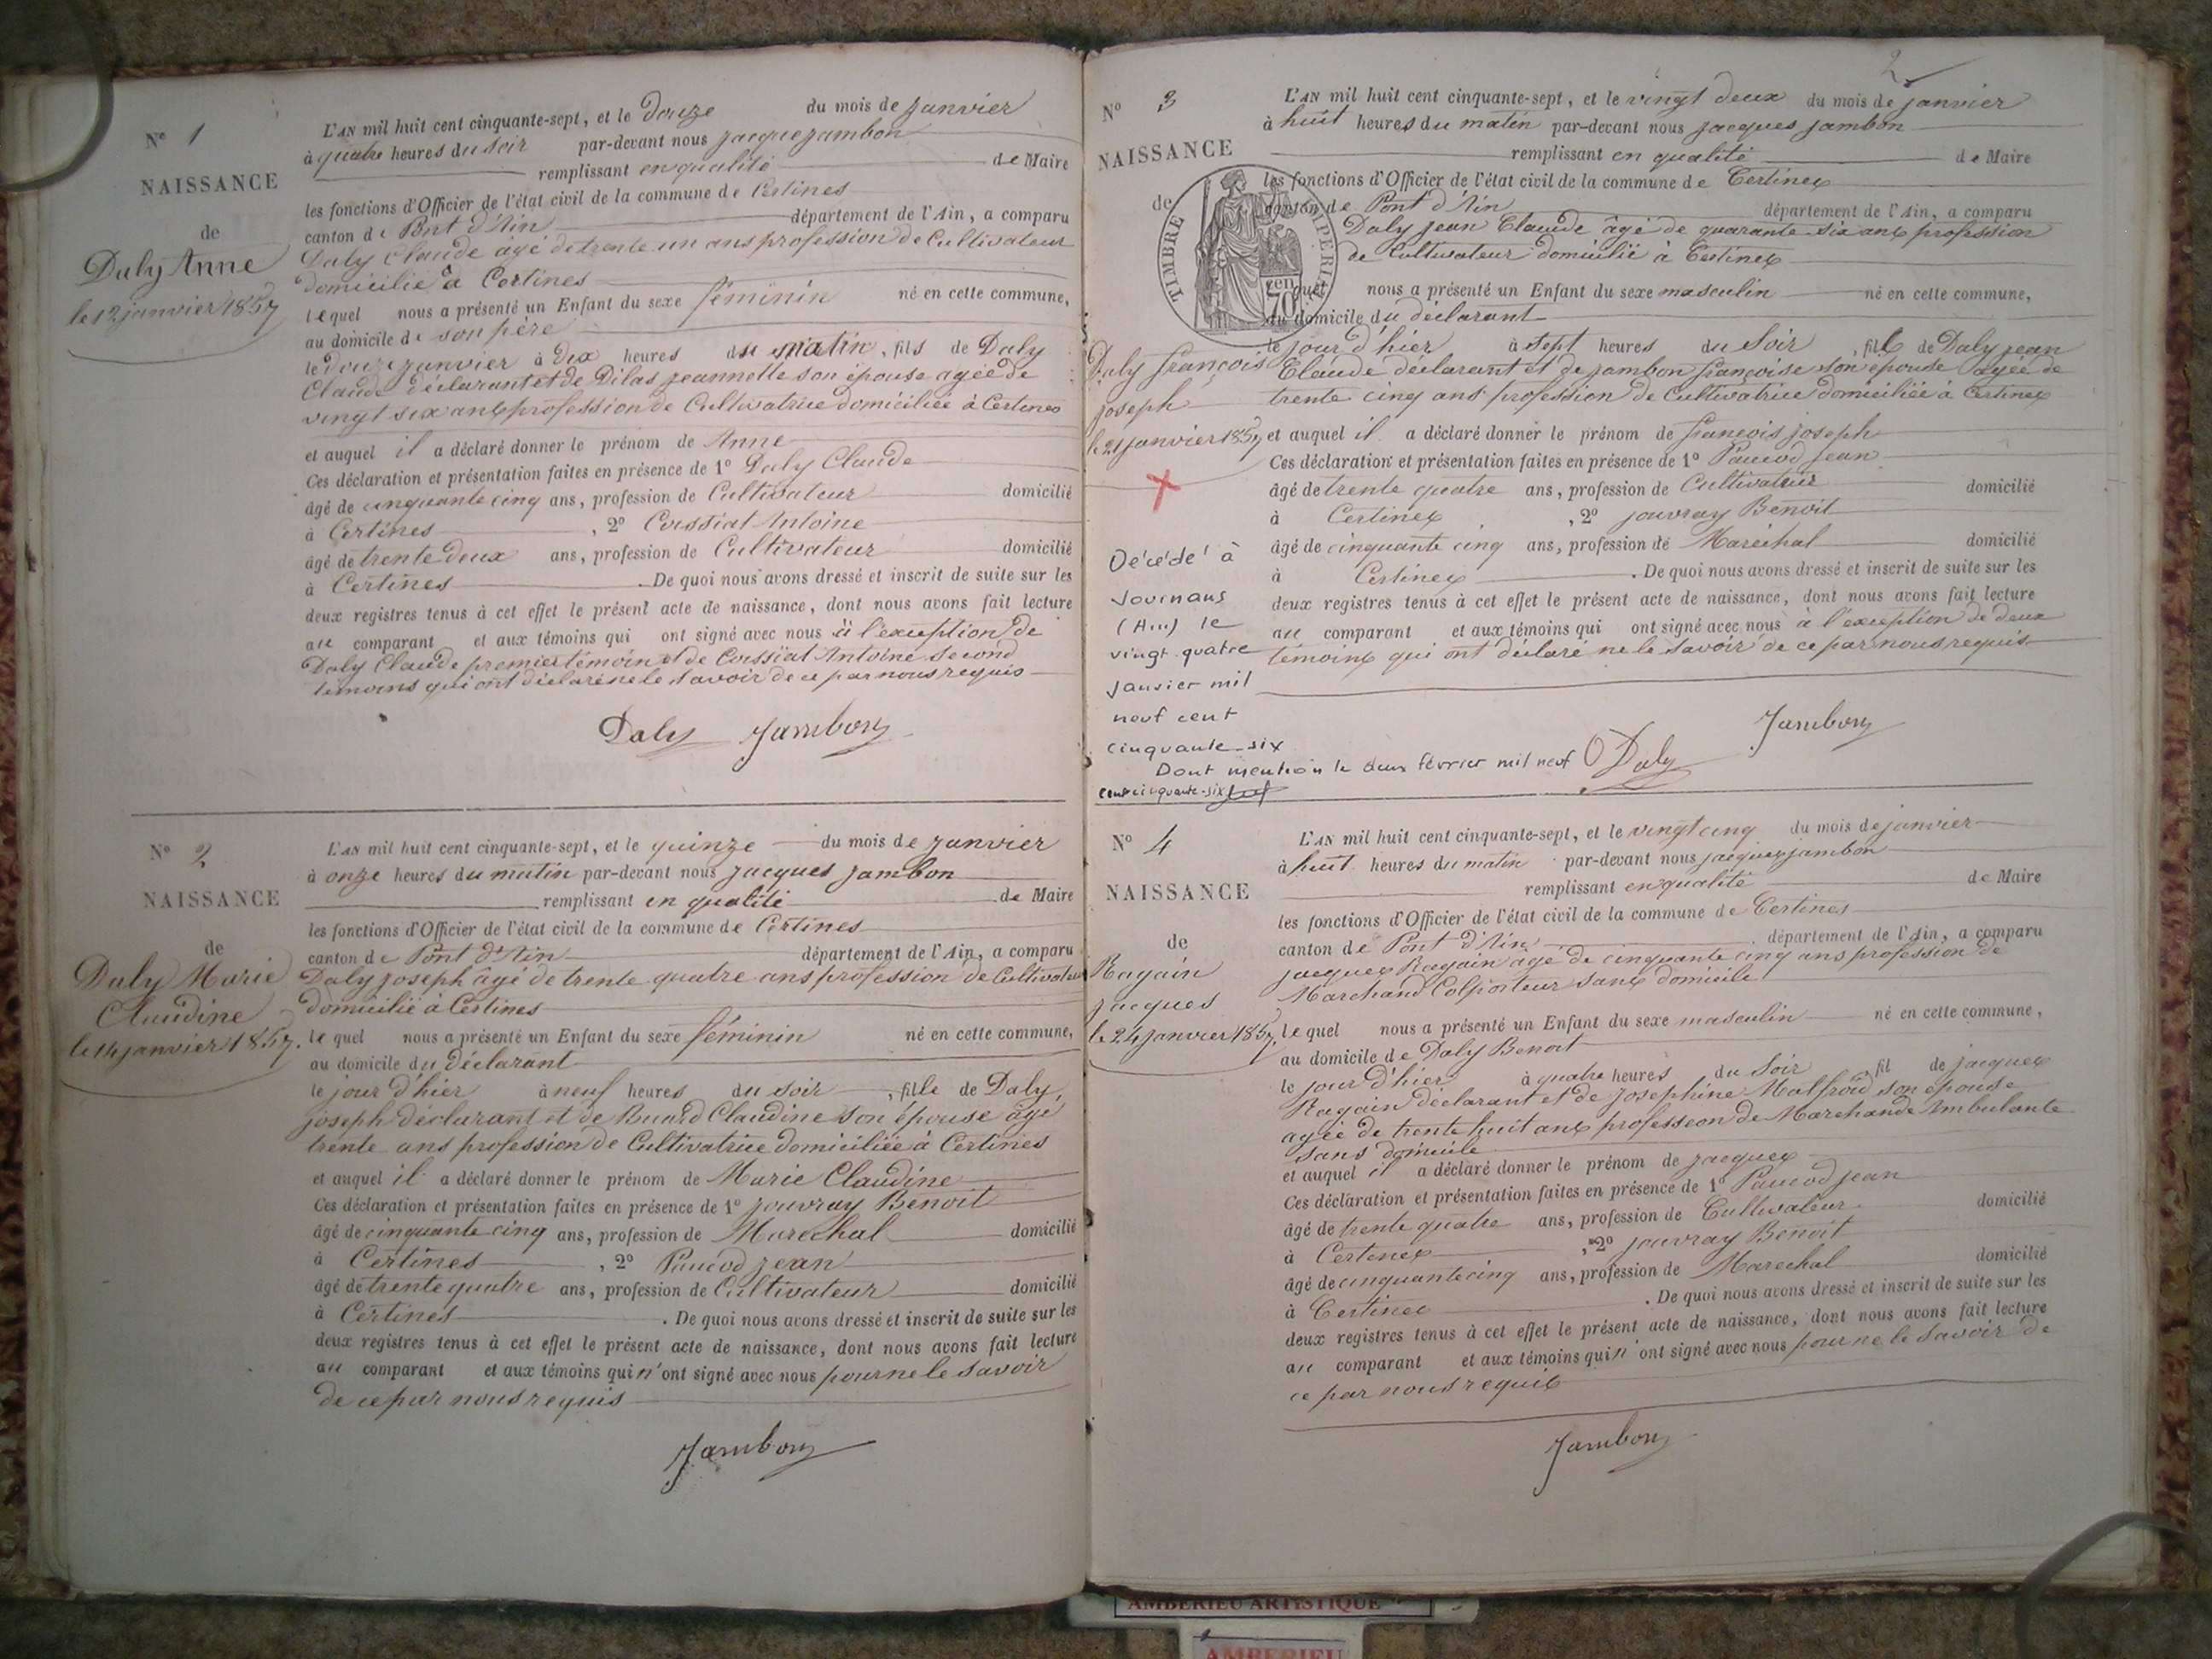 Nº 1
NAISSANCE
de
Daly Anne
le 12 janvier 1857
L'AN mil huit cent cinquante-sept, et le douze du mois de janvier
à quatre heures du soir par-devant nous jacque jambon
remplissant en qualité de Maire
les fonctions d'Officier de l'état civil de la commune de Certines
canton de Pont d'Ain département de l'Ain, a comparu
Daly Claude âgé de trente un ans profession de Cultivateur
domicilié à Certines
lequel nous a présenté un Enfant du sexe féminin né en cette commune,
au domicile de son père
le douze janvier à dix heures du matin, fils de Daly
Claude déclarant et de Dilas jeannette son épouse agée de
vingt six ans profession de Cultivatrice domiciliée à Certines
et auquel il a déclaré donner le prénom de Anne
Ces déclaration et présentation faites en présence de 1º Daly Claude
âgé de cinquante cinq ans, profession de Cultivateur domicilié
à Certines, 2º Cossiat Antoine
âgé de trente deux ans, profession de Cultivateur domicilié
à Certines. De quoi nous avons dressé et inscrit de suite sur les
deux registres tenus à cet effet le présent acte de naissance, dont nous avons fait lecture
au comparant et aux témoins qui ont signé avec nous à l'exception de
Daly Claude premier témoin et de Cossiat Antoine second
témoins qui ont déclaré ne le savoir de ce par nous requis
Daly Jambon
Nº 2
NAISSANCE
de
Daly Marie
Claudine
le 14 janvier 1857.
L'AN mil huit cent cinquante-sept, et le quinze du mois de janvier
à onze heures du matin par-devant nous jacques jambon
remplissant en qualité de Maire
les fonctions d'Officier de l'état civil de la commune de Certines
canton de Pont d'Ain département de l'Ain, a comparu
Daly joseph âgé de trente quatre ans profession de Cultivateur
domicilié à Certines
lequel nous a présenté un Enfant du sexe féminin né en cette commune,
au domicile du déclarant
le jour d'hier à neuf heures du soir, fille de Daly,
joseph déclarant et de Buard Claudine son épouse âgé
trente ans profession de Cultivatrice domiciliée à Certines
et auquel il a déclaré donner le prénom de Marie Claudine
Ces déclaration et présentation faites en présence de 1º jouvray Benoit
âgé de cinquante cinq ans, profession de Marechal domicilié
à Certines, 2º PauCod jean
âgé de trente quatre ans, profession de Cultivateur domicilié
à Certines. De quoi nous avons dressé et inscrit de suite sur les
deux registres tenus à cet effet le présent acte de naissance, dont nous avons fait lecture
au comparant et aux témoins qui n'ont signé avec nous pour ne le savoir
de ce par nous requis
Jambon
2
Nº 3
NAISSANCE
de
TIMBRE IMPERIAL
70 cen
Daly françois
joseph
le 21 janvier 1857
L'AN mil huit cent cinquante-sept, et le vingt deux du mois de janvier
à huit heures du matin par-devant nous jacques jambon
remplissant en qualité de Maire
les fonctions d'Officier de l'état civil de la commune de Certines
canton de Pont d'Ain département de l'Ain, a comparu
Daly jean Claude âgé de quarante six ans profession
de Cultivateur domicilié à Certines
lequel nous a présenté un Enfant du sexe masculin né en cette commune,
au domicile du déclarant
le jour d'hier à sept heures du Soir, fils de Daly jean
Claude déclarant et de jambon françoise son épouse agée de
trente cinq ans profession de Cultivatrice domiciliée à Certines
et auquel il a déclaré donner le prénom de françois joseph
Ces déclaration et présentation faites en présence de 1º Paucod jean
âgé de trente quatre ans, profession de Cultivateur domicilié
à Certines, 2º jouvray Benoit
âgé de cinquante cinq ans, profession de Maréchal domicilié
à Certines. De quoi nous avons dressé et inscrit de suite sur les
deux registres tenus à cet effet le présent acte de naissance, dont nous avons fait lecture
au comparant et aux témoins qui ont signé avec nous à l'exception de deux
témoins qui ont déclaré ne le savoir de ce par nous requis
Décédé à
Journans
(Ain) le
vingt quatre
Janvier mil
neuf cent
cinquante-six
Dont mention le deux février mil neuf
cent cinquante-six
Daly
Jambon
Nº 4
NAISSANCE
de
Ragain
jacques
le 24 janvier 1857
L'AN mil huit cent cinquante-sept, et le vingt cinq du mois de janvier
à huit heures du matin par-devant nous jacques jambon
remplissant en qualité de Maire
les fonctions d'Officier de l'état civil de la commune de Certines
canton de Pont d'Ain département de l'Ain, a comparu
jacques Ragain agé de cinquante cinq ans profession de
Marchand Colporteur sans domicile
lequel nous a présenté un Enfant du sexe masculin né en cette commune,
au domicile de Daly Benoit
le jour d'hier à quatre heures du Soir, fil de jacques
Ragain déclarant et de Josephine Malfroid son épouse
agée de trente huit ans professeon de Marchande Ambulante
sans domicile
et auquel il a déclaré donner le prénom de jacques
Ces déclaration et présentation faites en présence de 1º Paucod jean
âgé de trente quatre ans, profession de Cultivateur domicilié
à Certines, 2º jouvray Benoit
âgé de cinquante cinq ans, profession de Marechal domicilié
à Certines. De quoi nous avons dressé et inscrit de suite sur les
deux registres tenus à cet effet le présent acte de naissance, dont nous avons fait lecture
au comparant et aux témoins qui n'ont signé avec nous pour ne le savoir de
ce par nous requis
Jambon
AMBERIEU ARTISTIQUE
AMBERIEU